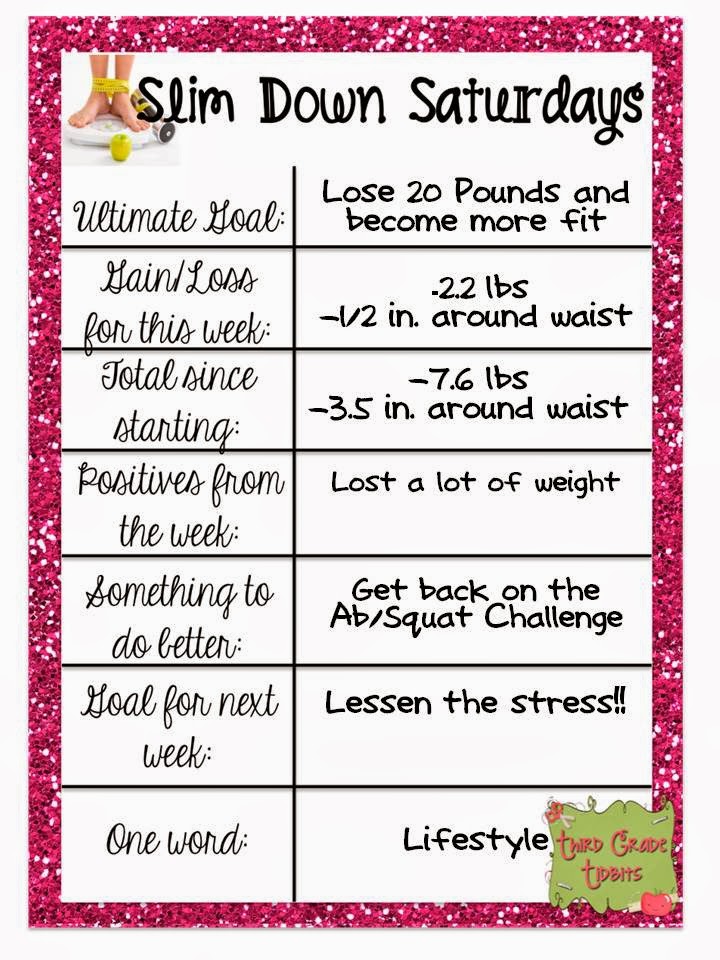 Slim Down Saturdays
Ultimate Goal:
Lose 20 Pounds and
become more fit
Gain/Loss
for this week:
-2.2 lbs
-1/2 in. around waist
Total since
starting:
-7.6 lbs
-3.5 in. around waist
Positives from
the week:
Lost a lot of weight
Something to
do better:
Get back on the
Ab/Squat Challenge
Goal for next
week:
Lessen the stress!!
One word:
Lifestyle
Third Grade
Tidbits